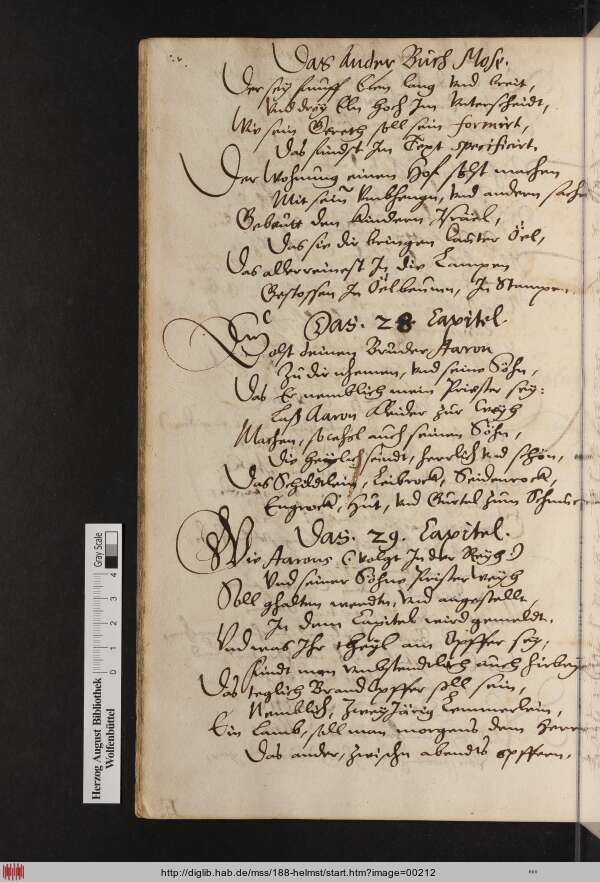 Das Ander Buch Mose.
Der sey fünff Elen lang vnd breit,
Vnd drey Eln hoch Im vnterscheidt,
Wie sein Gereth soll sein formirt,
Das findst Im Text specificirt.
Der Wohnung einen Hof solst machen
Mit sein Vmbhengn, vnd andern sache
Gebeutt den Kindern Israel,
Das sie dir bringen Lauter Öel,
Das allerreinest In die Lampen
Gestossen In Öelbeumen, In Stampen.
Das. 28. Capitel.
Du solst deinen Bruder Aaron
Zu dir nhemen, vnd seine Söhn,
Das Er nemblich mein Priester sey:
Laß Aaron Kleider zur Weyh
Machen, sowohl auch seinen Söhn,
Die heylich seindt, herrlich vnd schön,
Das Schildtlein, Leibrock, Seidenrock,
Engrock, Hut, vnd Gürtel zum
Das. 29. Capitel.
Wie Aarons (: volgt In der Reyh :)
Vnd seiner Söhne Priesterweyh
Soll ghalten werdtn, vnd angestellt,
In dem Capitel wird gemeldt.
Vnd was Ihr theyl am Opffer sey,
Findt man vmbstendtlich auch hierbey
Das teglich Brand Opffer soll sein,
Nemblich, Zwey Järig Lemmerlein,
Ein Lamb, soll man morgens dem Herrn
Das ander, zwischn abendts opffern.
Herzog August Bibliothek
Wolfenbüttel
0 1 2 3 4
Gray Scale
http://diglib.hab.de/mss/188-helmst/start.htm?image=00212